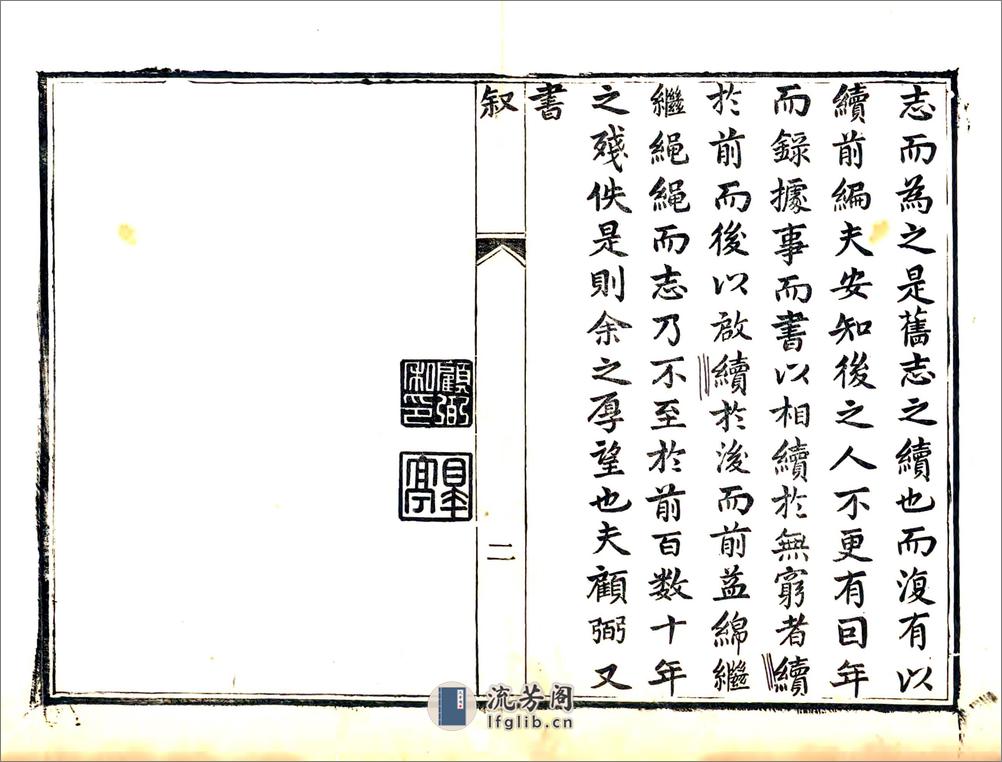 志而為之是舊志之續也而復有以
續前編夫安知後之人不更有因年
而錄據事而書以相續於無窮者續
於前而後以啟續於後而前益綿繼
繼繩繩而志乃不至於前百數十年
之殘佚是則余之厚望也夫顧弼又
書
叙
二
顧弼
私印
流芳阁
lfglib.cn